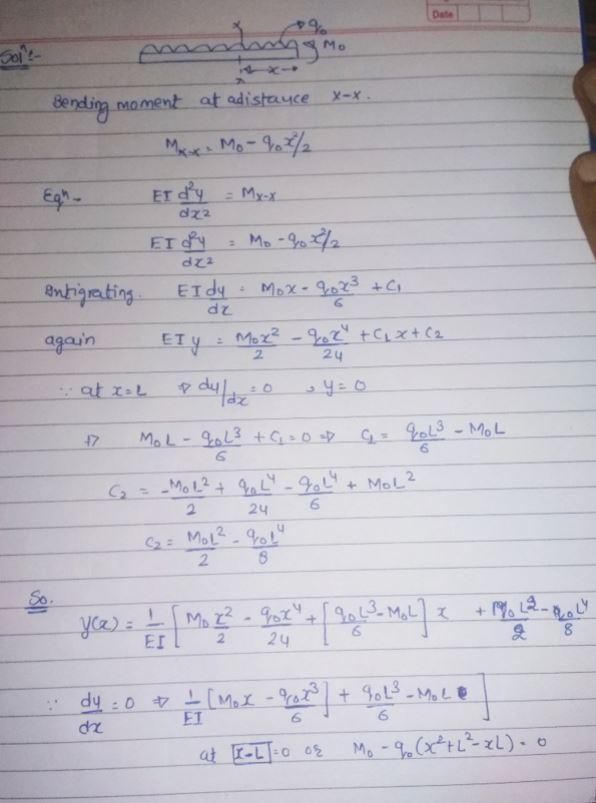 Date
Solⁿ:-
x
q₀
M₀
x
x
Bending moment at a distance x-x.
Mx-x = M₀ - q₀x²/2
Eqⁿ - EI d²y/dx² = Mx-x
EI d²y/dx² = M₀ - q₀x²/2
Intigrating. EI dy/dx = M₀x - q₀x³/6 + C₁
again EI y = M₀x²/2 - q₀x⁴/24 + C₁x + C₂
∵ at x=L ⇒ dy/dx = 0 , y = 0
⇒ M₀L - q₀L³/6 + C₁ = 0 ⇒ C₁ = q₀L³/6 - M₀L
C₂ = -M₀L²/2 + q₀L⁴/24 - q₀L⁴/6 + M₀L²
C₂ = M₀L²/2 - q₀L⁴/8
So.
y(x) = 1/EI [ M₀x²/2 - q₀x⁴/24 + [ q₀L³/6 - M₀L ] x + M₀L²/2 - q₀L⁴/8
∵ dy/dx = 0 ⇒ 1/EI [ M₀x - q₀x³/6 ] + q₀L³/6 - M₀L ]
at x-L = 0 or M₀ - q₀(x²+L²-xL) = 0